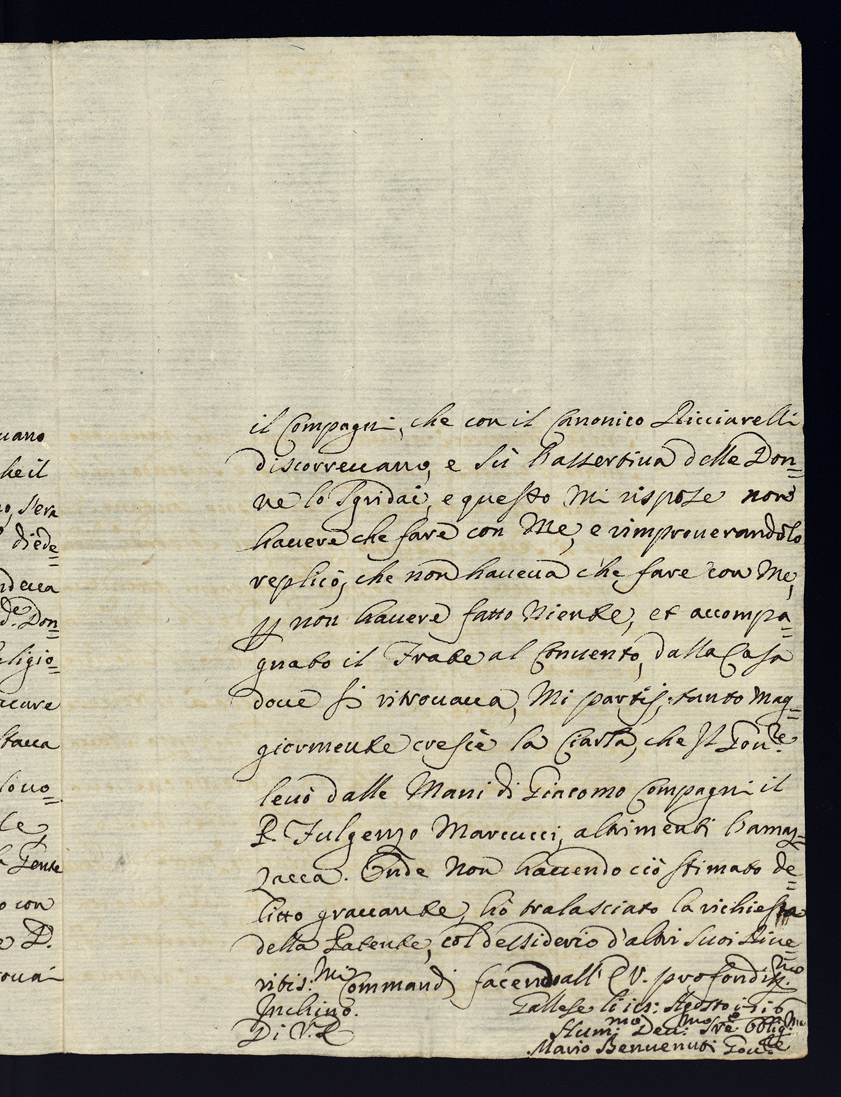 uano
he il
no, s'era
diede=
ndeua
de Don=
eligio=
curare
staua
le
Gente
o con
e P.
roua
il Compagni, che con il Canonico Ricciarelli
discorreuano, e sù l'assertiua delle Don=
ne lo sgridai, e questo Mi rispose non
hauere che fare con Me, e rimprouerandolo
replicò, che non haueua che fare con Me,
p non hauere fatto Niente, et accompa=
gnato il Frate al Conuento, dalla Casa
doue si ritrouaua, Mi partij, tanto Mag=
giormente crescè la Ciarla, che Il Gou.re
leuò dalle Mani di Giacomo Compagni il
P. Fulgenzo Marcucci, altrimenti l'amaz=
zaua. Onde Non hauendo ciò stimato de=
litto grauante, hò tralasciato la richiesta
della Patente, col dessiderio d'altri suoi Riue=
ritis:mi Commandi, facendo all' V. profondiss.mo
Inchino.
Gallese li Agosto
Di V. R.
Hum.mo Deu.mo Sre Obblig.mo
Mario Benuenuti Gou.re